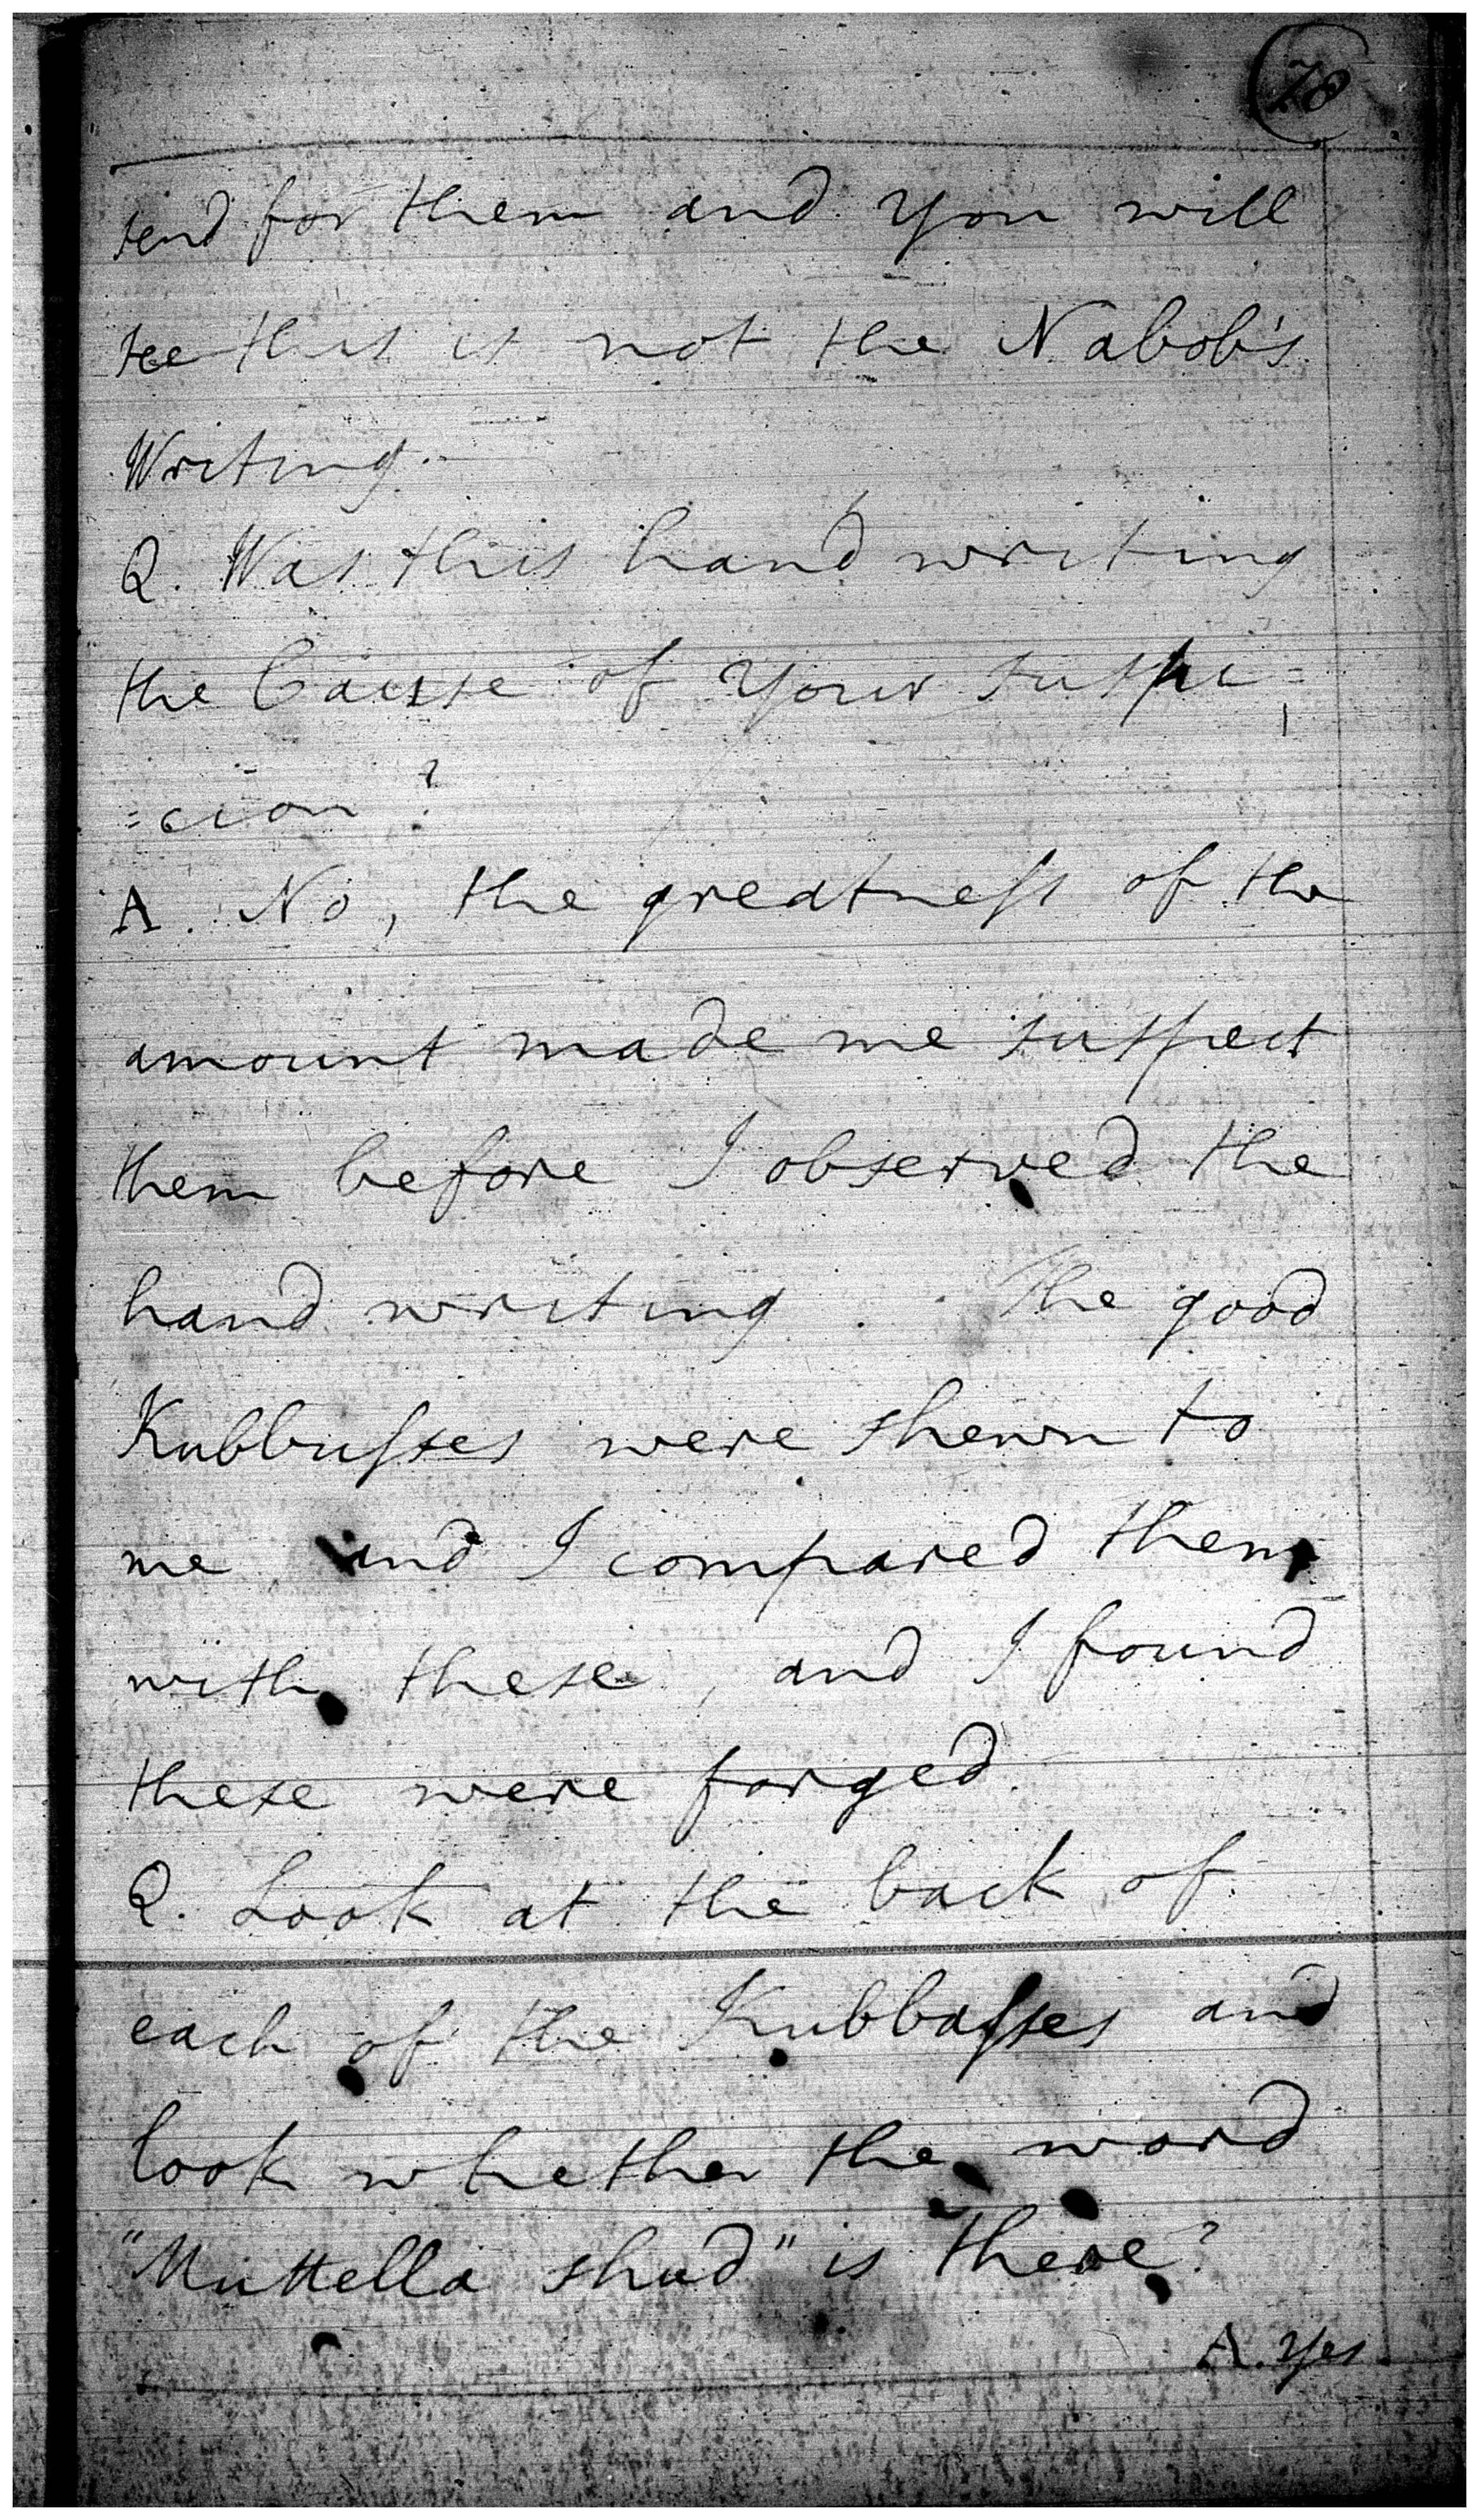 78
send for them and you will
see this is not the Nabob's
Writing.
Q. Was this hand writing
the Cause of Your suspi=
=cion?
A. No, the greatness of the
amount made me suspect
them before I observed the
hand writing. The good
Kubbusses were shewn to
me and I compared them
with these, and I found
these were forged.
Q. Look at the back of
each of the Kubbasses and
look whether the word
"Muttella shud" is there?
A. Yes